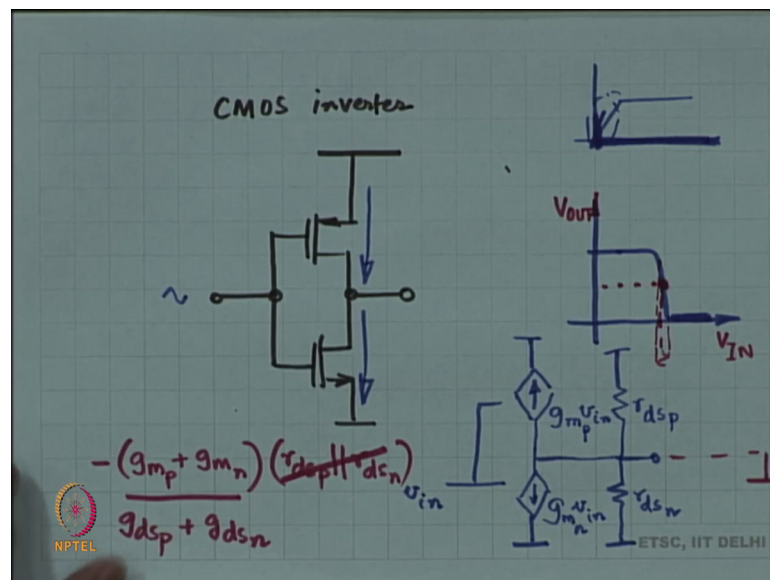 CMOS inverter
V_OUT
V_IN
~
g_mp v_in
r_dsp
g_mn v_in
r_dsn
v_in
-(g_mp + g_mn)(r_dsp || r_dsn)
g_dsp + g_dsn
NPTEL
ETSC, IIT DELHI